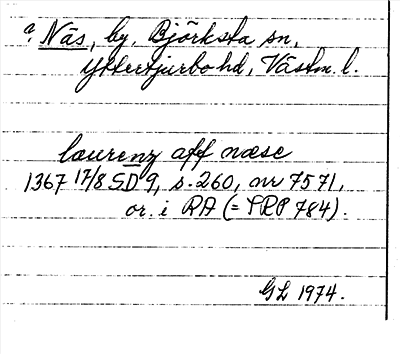 ? Näs, by, Björksta sn,
Yttertjurbo hd, Västm. l.
laurenz aff næse
1367 17/8 SD 9, s. 260, nr 7571,
or. i RA (= PRP 784).
GL 1974.